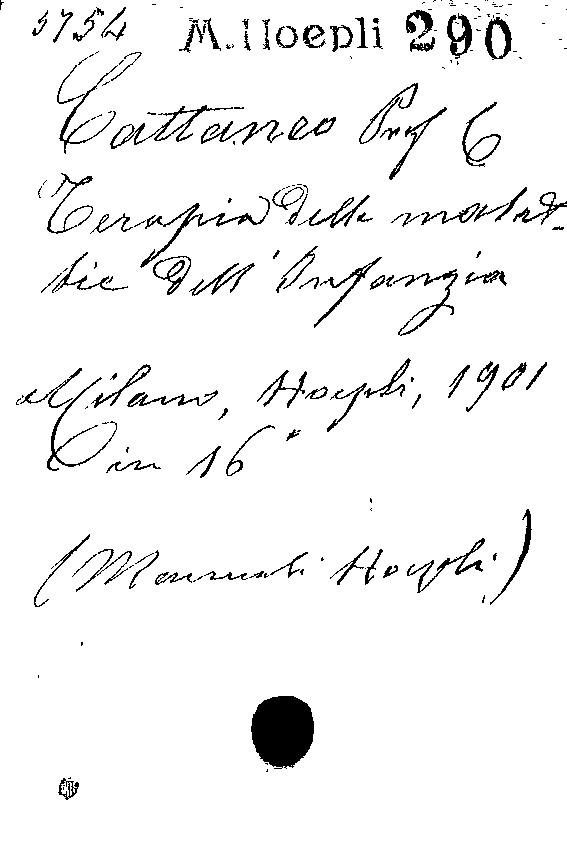 5754 M. Hoepli 290
Cattaneo Prof C
Terapia delle malat-
tie dell'Infanzia
Milano, Hoepli, 1901
in 16°
(Manuali Hoepli)